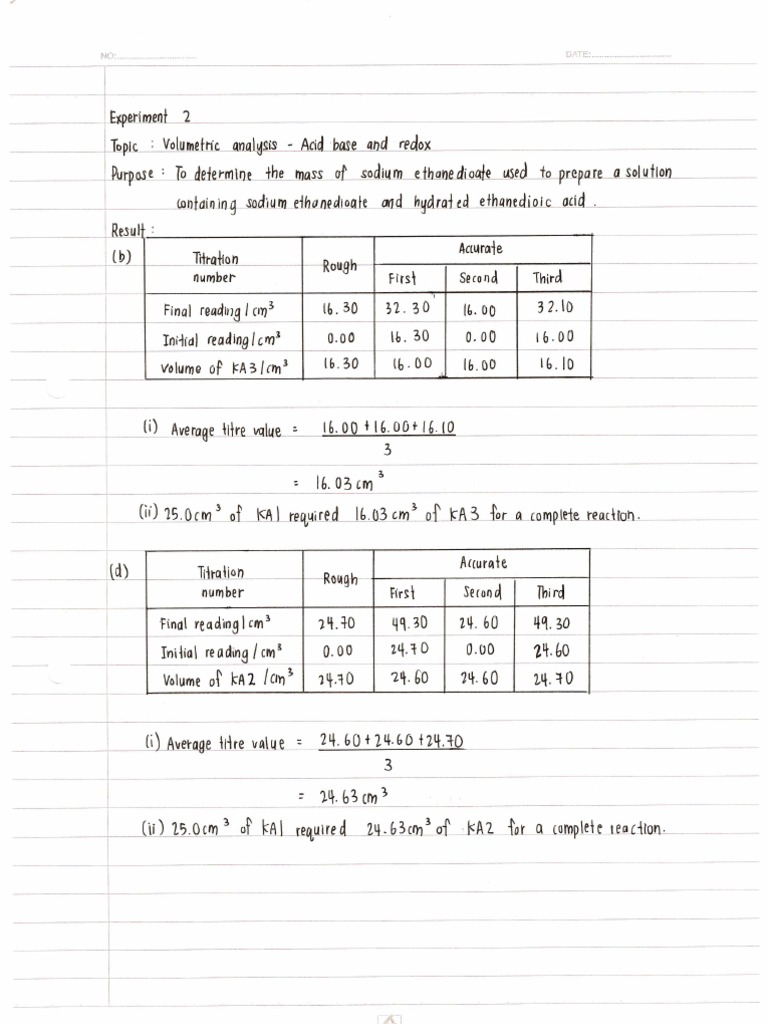 NO: DATE:
Experiment 2
Topic : Volumetric analysis - Acid base and redox
Purpose : To determine the mass of sodium ethanedioate used to prepare a solution
containing sodium ethanedioate and hydrated ethanedioic acid.
Result :
(b) Titration number Rough Accurate
First Second Third
Final reading / cm³ 16.30 32.30 16.00 32.10
Initial reading / cm³ 0.00 16.30 0.00 16.00
Volume of KA3 / cm³ 16.30 16.00 16.00 16.10
(i) Average titre value = 16.00 + 16.00 + 16.10
3
= 16.03 cm³
(ii) 25.0 cm³ of KA1 required 16.03 cm³ of KA3 for a complete reaction.
(d) Titration number Rough Accurate
First Second Third
Final reading / cm³ 24.70 49.30 24.60 49.30
Initial reading / cm³ 0.00 24.70 0.00 24.60
Volume of KA2 / cm³ 24.70 24.60 24.60 24.70
(i) Average titre value = 24.60 + 24.60 + 24.70
3
= 24.63 cm³
(ii) 25.0 cm³ of KA1 required 24.63 cm³ of KA2 for a complete reaction.